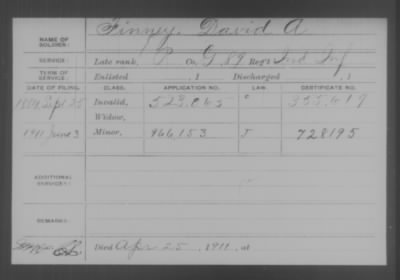 NAME OF SOLDIER: Finney, David A
SERVICE: Late rank, P Co. G, 89 Reg't Ind Inf
TERM OF SERVICE: Enlisted , 1 Discharged , 1
DATE OF FILING. CLASS. APPLICATION NO. LAW. CERTIFICATE NO.
Sept 25 Invalid, 523,065
Widow,
1911 June 3 Minor, 966,153 J 728195
ADDITIONAL SERVICES:
REMARKS:
Died Apr 25, 1911, at